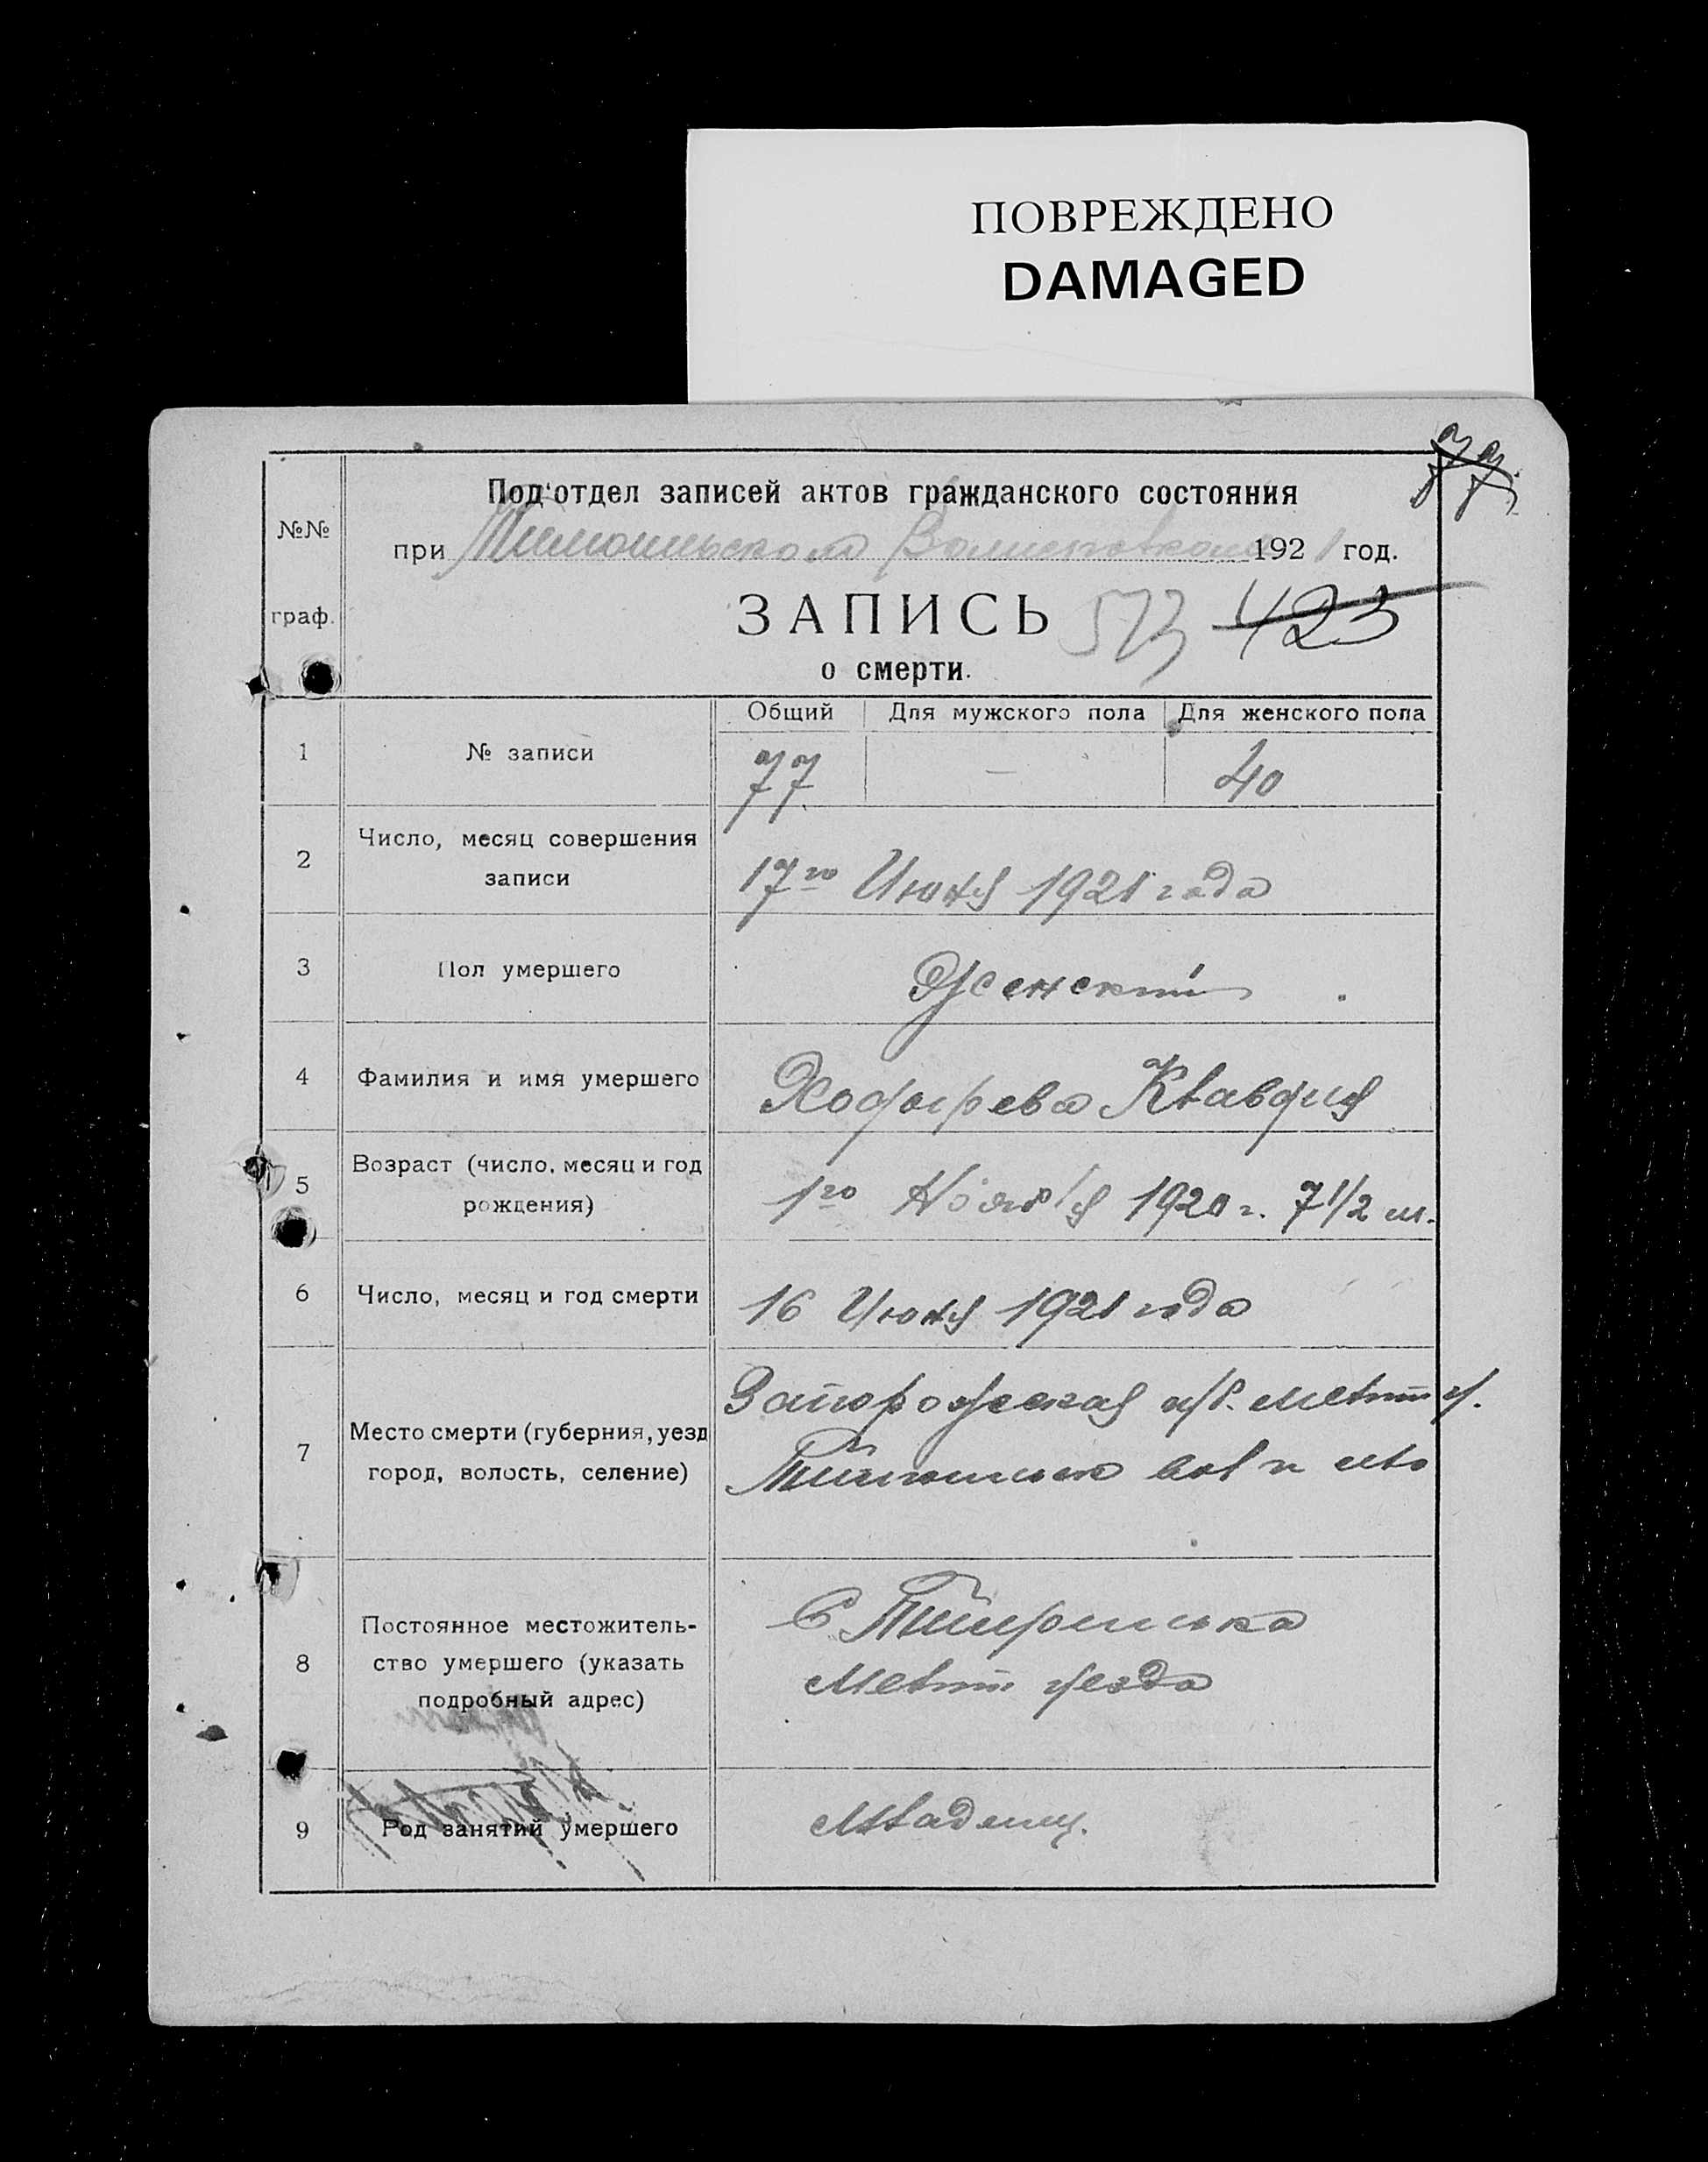 ПОВРЕЖДЕНО
DAMAGED
77.
№№ граф.
Под'отдел записей актов гражданского состояния
при 1921 год.
ЗАПИСЬ 573 423
о смерти.
Общий Для мужского пола Для женского пола
1 № записи 77 — 40
2 Число, месяц совершения
записи 17го Июня 1921 года
3 Пол умершего Женский
4 Фамилия и имя умершего Ходырева Клавдия
5 Возраст (число, месяц и год
рождения) 1го Ноября 1920 г. 7 1/2 м.
6 Число, месяц и год смерти 16 Июня 1921 года
7 Место смерти (губерния, уезд
город, волость, селение)
Запорожская губ. Мелит у.
вол
8 Постоянное местожитель-
ство умершего (указать
подробный адрес)
С
Мелит уезда
9 Род занятий умершего Младенец.